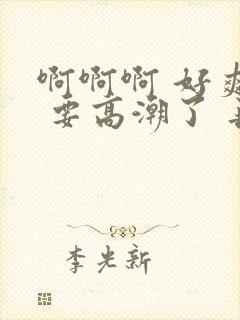 啊啊啊 好爽
要高潮了
李光新